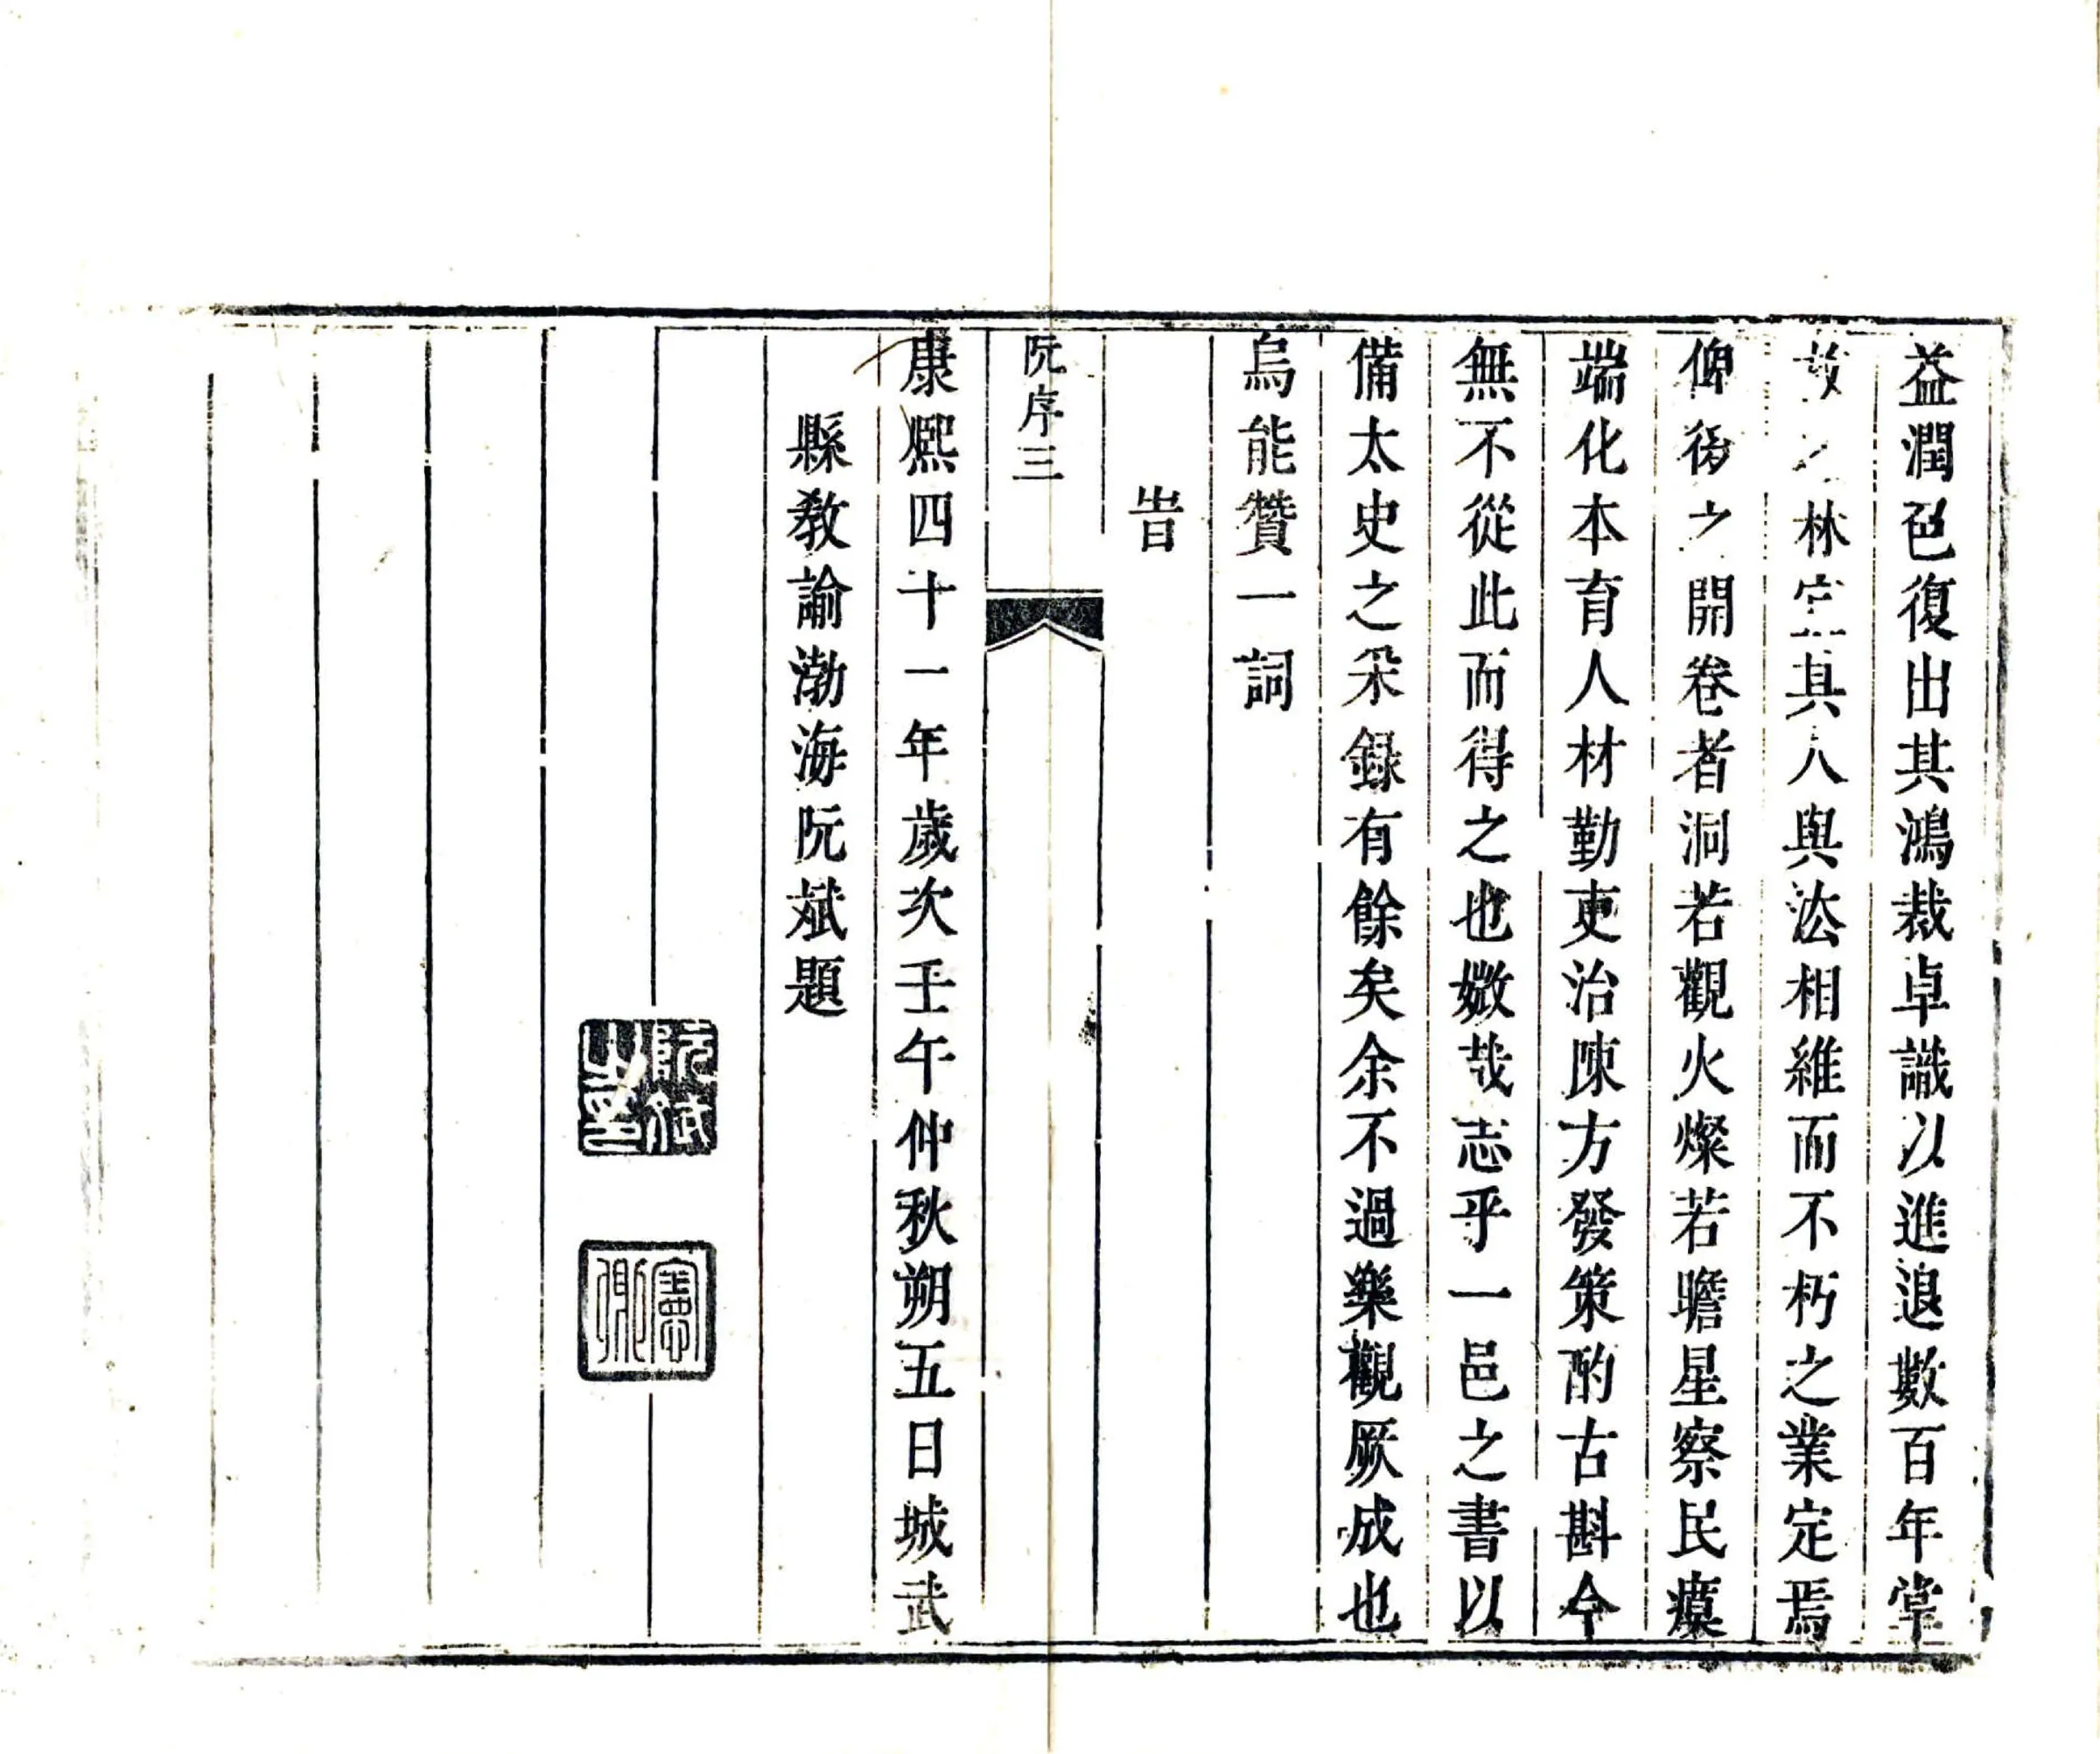 益潤色復出其鴻裁卓識以進退數百年掌
故之林定其人與法相維而不朽之業定焉
俾後之開卷者洞若觀火燦若瞻星察民瘼
端化本育人材勤吏治陳方發策酌古斟今
無不從此而得之也媺哉志乎一邑之書以
備太史之采錄有餘矣余不過樂觀厥成也
烏能贊一詞
旹
阮序三
康熙四十一年歲次壬午仲秋朔五日城武
縣教諭渤海阮斌題
阮斌之印
憲卿